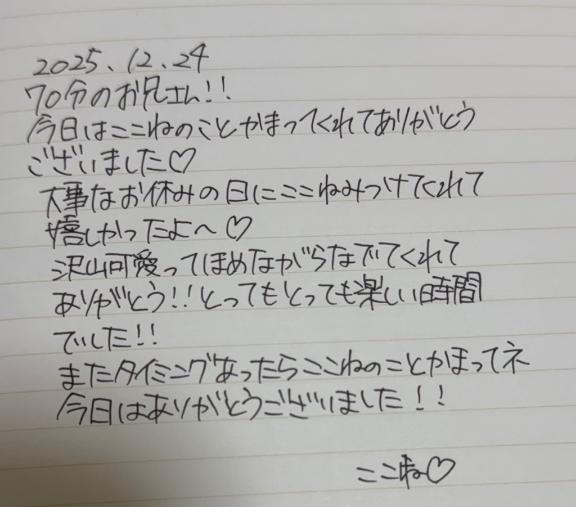 2025.12.24
70分のお兄さん!!
今日はここねのことかまってくれてありがとう
ございました♡
大事なお休みの日にここねみつけてくれて
嬉しかったよ〜♡
沢山可愛ってほめながらなでてくれて
ありがとう!!とってもとっても楽しい時間
でした!!
またタイミングあったらここねのことかまってネ
今日はありがとうございました!!
ここね♡